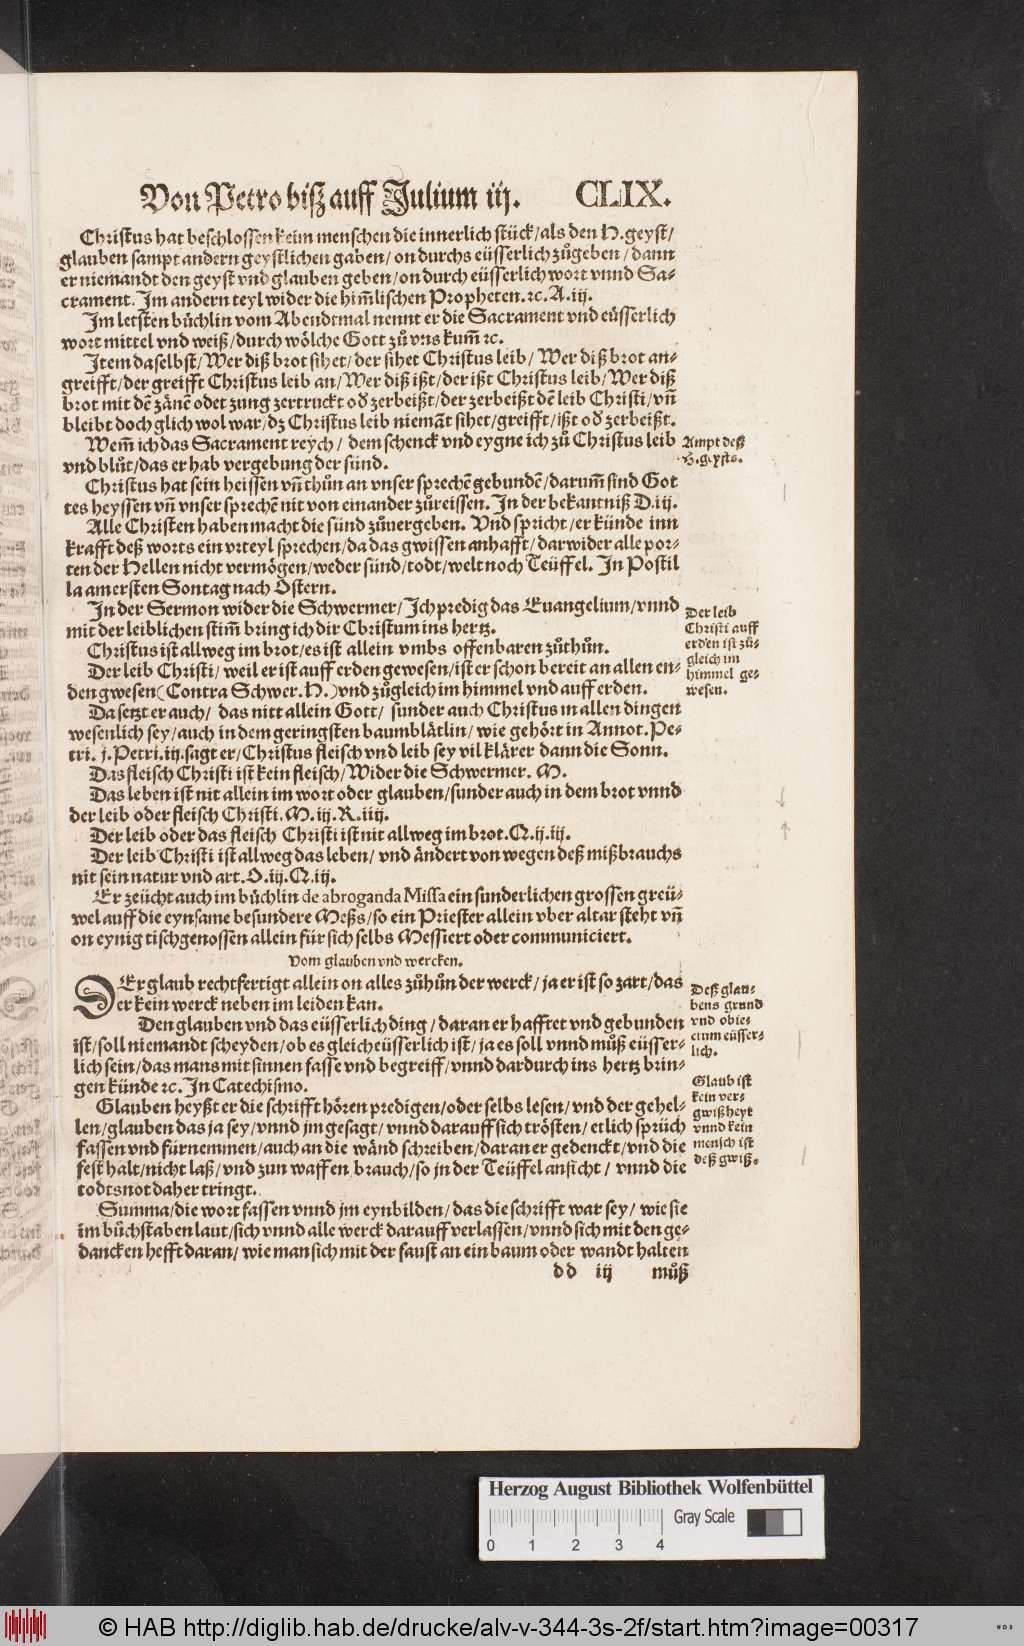 Von Petro biß auff Julium iij. CLIX.
Christus hat beschlossen keim menschen die innerlich stück/als den H.geyst/
glauben sampt andern geystlichen gaben/on durchs eüsserlich zůgeben/dann
er niemandt den geyst vnd glauben geben/on durch eüsserlich wort vnnd Sa-
crament. Im andern teyl wider die him̃lischen Propheten.ꝛc.A.iij.
Im letsten bůchlin vom Abendtmal nennt er die Sacrament vnd eüsserlich
wort mittel vnd weiß/durch wölche Gott zů vns kum̃ ꝛc.
Item daselbst/Wer diß brot sihet/der sihet Christus leib/Wer diß brot an-
greifft/der greifft Christus leib an/Wer diß ißt/der ißt Christus leib/Wer diß
brot mit dẽ zänẽ odet zung zertruckt oď zerbeißt/der zerbeißt dẽ leib Christi/vñ
bleibt doch glich wol war/dz Christus leib niemãt sihet/greifft/ißt oď zerbeißt.
Wem̃ ich das Sacrament reych/ dem schenck vnd eygne ich zů Christus leib
vnd blůt/das er hab vergebung der sünd.
Ampt deß
H.geysts.
Christus hat sein heissen vñ thůn an vnser sprechẽ gebundẽ/darum̃ sind Got
tes heyssen vñ vnser sprechẽ nit von einander zůreissen. In der bekantniß D.iij.
Alle Christen haben macht die sünd zůuergeben. Vnd spricht/er künde inn
krafft deß worts ein vrteyl sprechen/da das gwissen anhafft/darwider alle por-
ten der Hellen nicht vermögen/weder sünd/todt/welt noch Teüffel. In Postil
la am ersten Sontag nach Ostern.
In der Sermon wider die Schwermer/Ich predig das Euangelium/vnnd
mit der leiblichen stim̃ bring ich dir Cbristum ins hertz.
Christus ist allweg im brot/es ist allein vmbs offenbaren zůthůn.
Der leib Christi/ weil er ist auff erden gewesen/ist er schon bereit an allen en-
den gwesen (Contra Schwer.H.) vnd zůgleich im himmel vnd auff erden.
Der leib
Christi auff
erden ist zů-
gleich im
himmel ge-
wesen.
Da setzt er auch/ das nitt allein Gott/ sunder auch Christus in allen dingen
wesenlich sey/auch in dem geringsten baumblätlin/ wie gehört in Annot.Pe-
tri. j.Petri.iij.sagt er/Christus fleisch vnd leib sey vil klärer dann die Sonn.
Das fleisch Christi ist kein fleisch/Wider die Schwermer. M.
Das leben ist nit allein im wort oder glauben/sunder auch in dem brot vnnd
der leib oder fleisch Christi.M.ij.R.iiij.
Der leib oder das fleisch Christi ist nit allweg im brot.Q.ij.iij.
Der leib Christi ist allweg das leben/ vnd ändert von wegen deß mißbrauchs
nit sein natur vnd art.O.iij.Q.iij.
Er zeücht auch im bůchlin de abroganda Missa ein sunderlichen grossen greü-
wel auff die eynsame besundere Meßs/so ein Priester allein vber altar steht vñ
on eynig tischgenossen allein für sich selbs Messiert oder communiciert.
Vom glauben vnd wercken.
DEr glaub rechtfertigt allein on alles zůthůn der werck/ ja er ist so zart/das
er kein werck neben im leiden kan.
Den glauben vnd das eüsserlich ding/ daran er hafftet vnd gebunden
ist/soll niemandt scheyden/ob es gleich eüsserlich ist/ ja es soll vnnd můß eüsser-
lich sein/das mans mit sinnen fasse vnd begreiff/vnnd dardurch ins hertz brin-
gen künde ꝛc. In Catechismo.
Deß glau-
bens grund
vnd obie-
ctum eüsser-
lich.
Glauben heyßt er die schrifft hören predigen/oder selbs lesen/ vnd der gehel-
len/glauben das ja sey/vnnd jm gesagt/ vnnd darauff sich trösten/ etlich sprüch
fassen vnd fürnemmen/auch an die wänd schreiben/daran er gedenckt/vnd die
fest halt/nicht laß/vnd zun waffen brauch/so jn der Teüffel ansicht/ vnnd die
todtsnot daher tringt.
Glaub ist
kein ver-
gwißheyt
vnnd kein
mensch ist
deß gwiß.
Summa/die wort fassen vnnd jm eynbilden/ das die schrifft war sey/ wie sie
im bůchstaben laut/sich vnnd alle werck darauff verlassen/vnnd sich mit den ge-
dancken hefft daran/ wie man sich mit der faust an ein baum oder wandt halten
dd iij můß
Herzog August Bibliothek Wolfenbüttel
Gray Scale
0 1 2 3 4
© HAB http://diglib.hab.de/drucke/alv-v-344-3s-2f/start.htm?image=00317